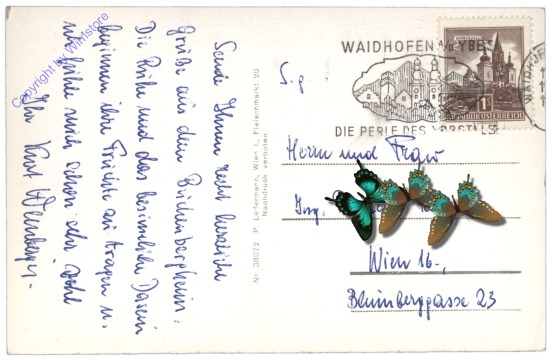 Sende Ihnen recht herzliche
Grüße aus dem Buchenbergheim.
Die Ruhe und das besinnliche Dasein
beginnen ihre Früchte zu tragen u.
ich fühle mich schon sehr wohl
Ihr Karl Weinberger
Nr. 38072 P. Ledermann, Wien I., Fleischmarkt 20
Nachdruck verboten
WAIDHOFEN A/D YBBS
DIE PERLE DES YBBSTALS
REPUBLIK ÖSTERREICH
Herrn und Frau
Ing.
Wien 16.,
Blumberggasse 23
Copyright by Wimstore